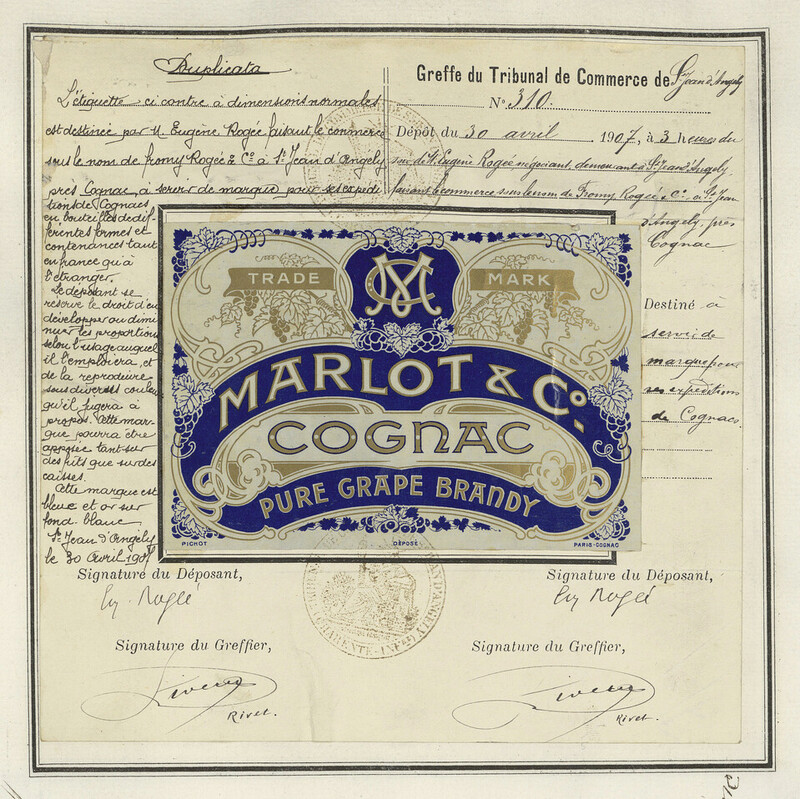 Duplicata
L'étiquette ci contre à dimensions normales
est destinée par M. Eugène Rogée faisant le commerce
sous le nom de Fromy Rogée & Cº à St Jean d'Angely
près Cognac, à servir de marque pour ses expédi
tions de Cognacs
en bouteilles de dif-
férentes formes et
contenances tant
en france qu'à
l'étranger.
Le déposant se
réserve le droit d'en
développer ou dimi
nuer les proportions
selon l'usage auquel
il l'emploiera, et
de la reproduire
sous diverses couleurs
qu'il jugera à
propos. Cette mar-
que pourra être
apposée tant sur
des fûts que sur des
caisses.
Cette marque est
bleue et or sur
fond blanc
St Jean d'Angély
le 30 Avril 1907
Greffe du Tribunal de Commerce de St Jean d'Angely
Nº 310.
Dépôt du 30 avril 1907, à 3 heures du
soir de M. Eugène Rogée négociant, demeurant à St Jean d'Angely,
faisant le commerce sous le nom de Fromy Rogée & Cº à St Jean
d'Angely, près
Cognac
Destiné à
servir de
marque pour
ses expéditions
de Cognacs.
TRADE MARK
MC
MARLOT & Cº.
COGNAC
PURE GRAPE BRANDY
PICHOT DÉPOSÉ PARIS-COGNAC
Signature du Déposant, Signature du Déposant,
Eug Rogée Eug Rogée
CHARENTE-INFRE
Signature du Greffier, Signature du Greffier,
Rivet. Rivet.